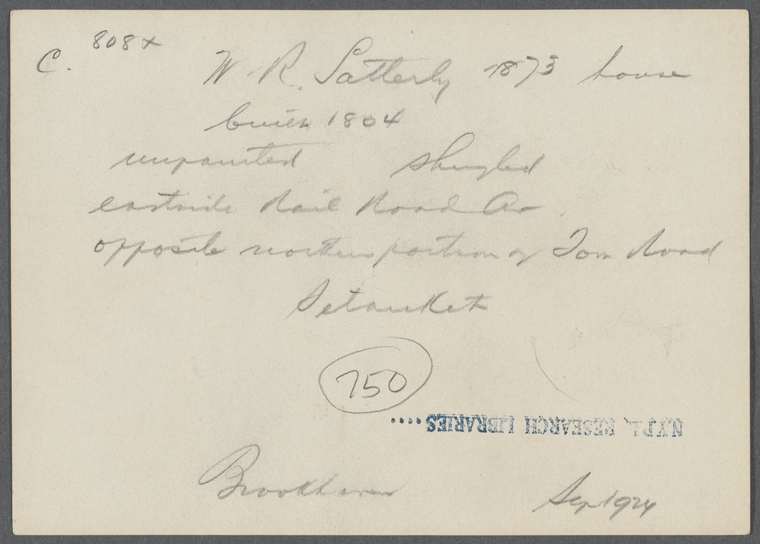 C. 808x
W. R. Satterly 1873 house
built 1804
unpainted shingled
eastside Rail Road Av.
opposite northern portion of Tom Road
Setauket
750
N.Y.P.L. RESEARCH LIBRARIES.....
Brookhaven
Sep 1924